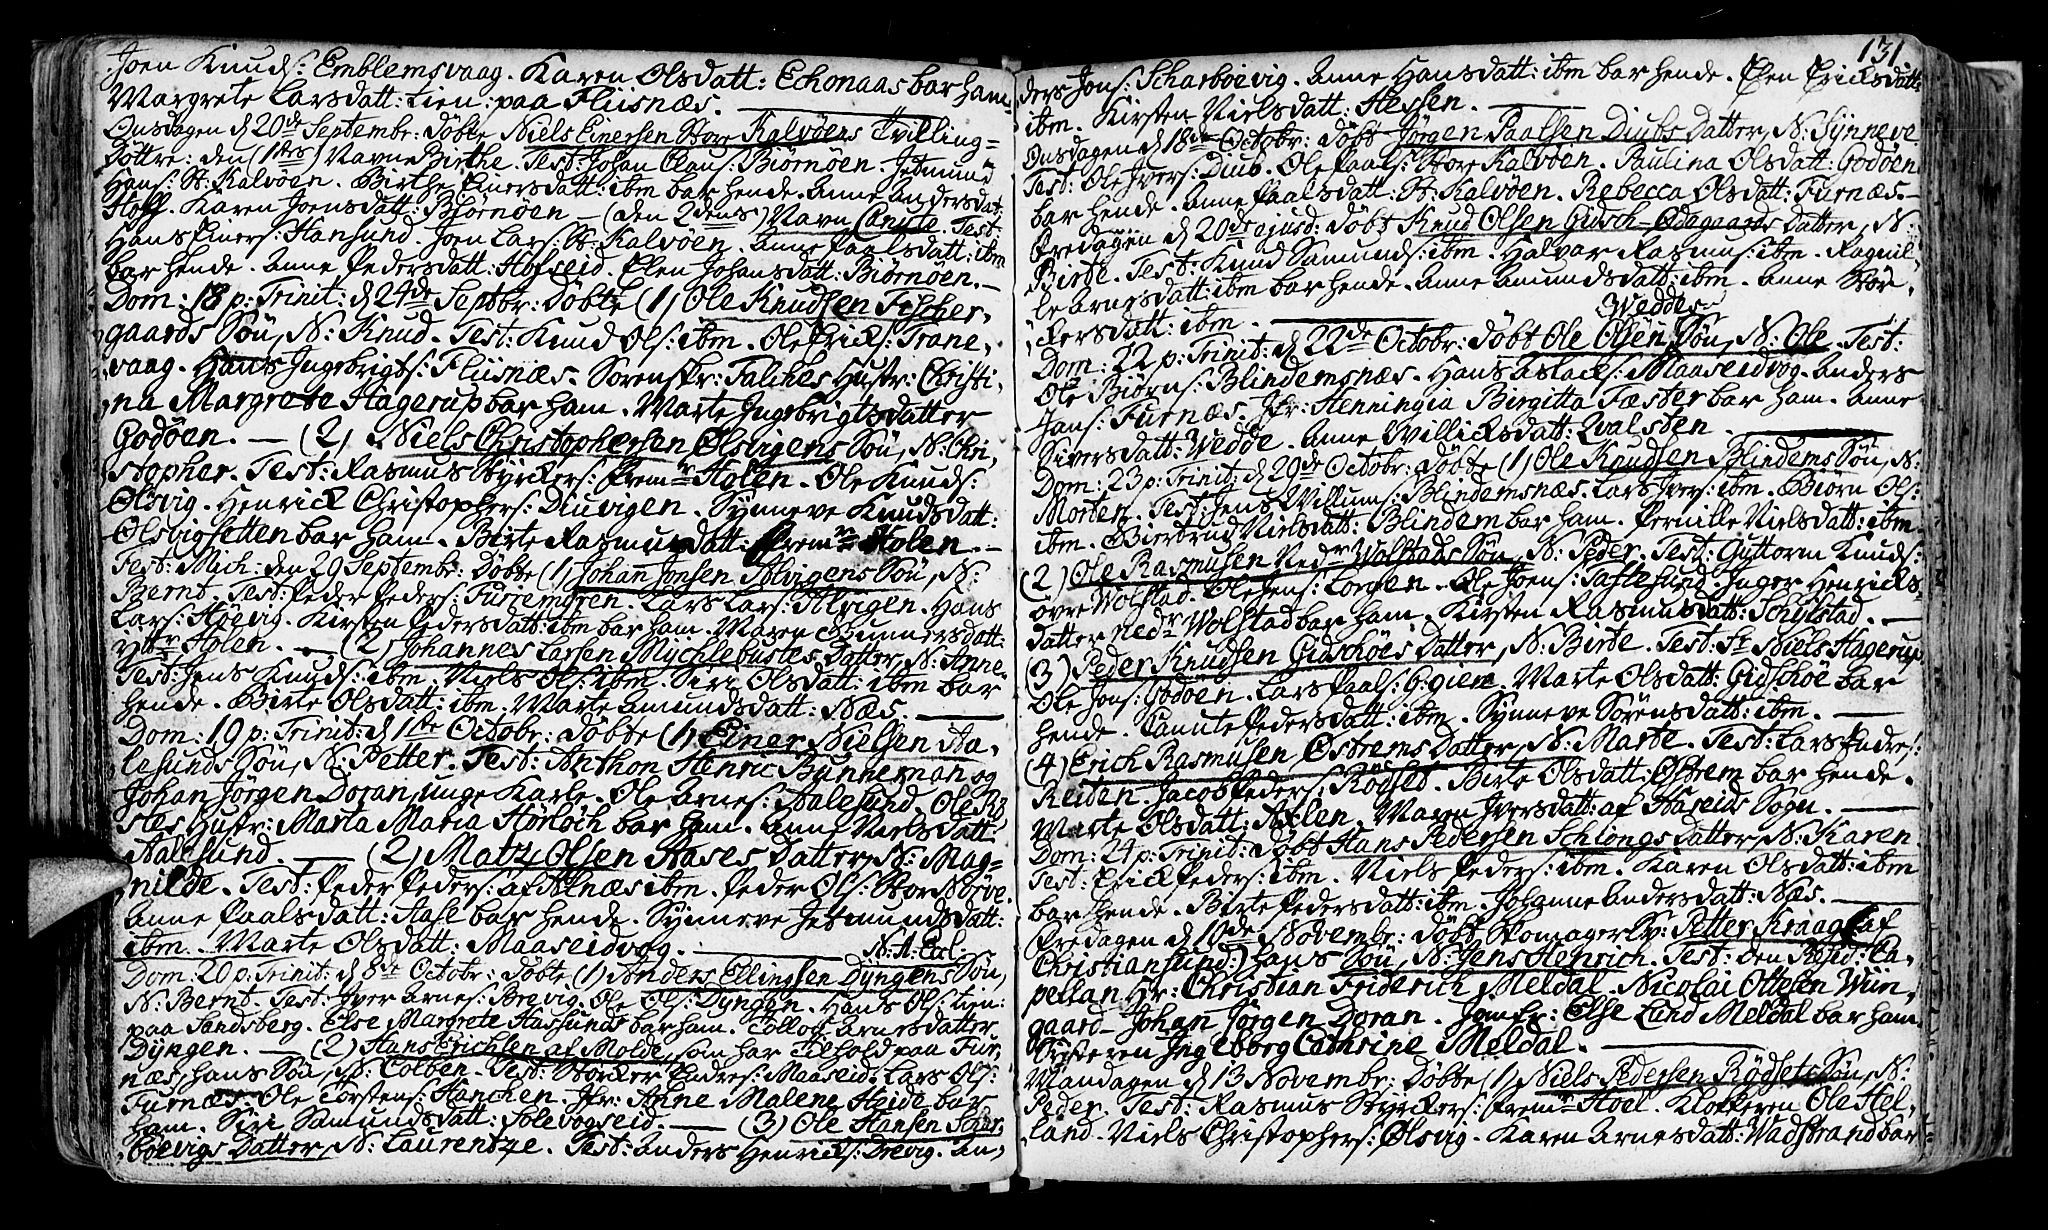 Joen Knuds: Emblemsvaag. Karen Olsdatt: Echonaas bar ham
Margrete Larsdatt: tien: paa Fliisnæs.
Onsdagen d 20de Septembr: døbte Niels Einersen Store Kalvøens Tvilling=
Døttre: den (1stes) Navn Birthe. Test: Johan Claus: Biørnøen. Jetmund
Hans: St: Kalvøen. Birthe Einersdatt: ibm bar hende. Anne Andersdat:
Hoff. Karen Joensdatt: Biørnøen – (den 2dens) Navn Canute. Test:
Hans Einers: Hansund. Joen Lars: St: Kalvøen. Anne Paalsdatt: ibm
bar hende. Anne Pedersdatt: Hofseid. Elen Johansdatt: Biørnøen. –
Dom: 18 p: Trinit: d 24de Septbr: Døbte (1) Ole Knudsen Fischer,
gaards Søn, N: Knud. Test: Knud Ols: ibm. Ole Erics: Trane,
vaag. Hans Ingebrigts: Fliisnæs. Sorenskr: Falches Hustr: Christi,
na Margrete Hagerup bar ham. Marte Ingebrigtsdatter
Godøen. – (2) Niels Christophersen Olsvigens Søn, N: Chri,
stopher. Test: Rasmus Styrckers: frem:r Holen. Ole Knuds:
Olsvig. Henrick Christophers: Diuvigen. Synneve Knudsdatt:
Olsvigsetten bar ham. Birte Rasmusdatt: frem:re Holen. –
Fest: Mich: den 29 Septembr: Døbte (1) Johan Jonsen Alvigens Søn, N:
Bernt. Test: Peder Peders: Furremÿren. Lars Lars: Alvigen. Hans
Lars: Høevig. Kirsten Pedersdatt: ibm bar ham. Maren Gunnersdatt:
ytt:r Holen. – (2) Johannes Larsen Mychlebustes Datter, N: Anne
Test: Jens Knuds: ibm. Niels Ols: ibm. Siri Olsdatt: ibm bar
hende. Birte Olsdatt: ibm. Marte Amundsdatt: Næs.
Dom: 19 p: Trinit: d 1ste Octobr: Døbte (1) Einer Nielsen Aa,
lesunds Søn, N: Petter. Test: Anthon Henric Bunneman og
Johan Jørgen Doran, unge Karle. Ole Arnes: Aalesund. Ole Rø,
stes Hustr: Marta Maria Hörlöch bar ham. Anne Nielsdatt:
Aalesund. – (2) Matz Olsen Aases Datter, N: Mag=
nilde. Test: Peder Peders: af Alnæs ibm. Peder Ols: Stor Nørve.
Anne Paalsdatt: Aase bar hende. Synneve Jetmundsdatt:
ibm. Marte Olsdatt: Maaseidvog. – N. A. Ecl:
Dom: 20 p: Trinit: d 8de Octobr: Døbte (1) Anders Ellingsen Dyngens Søn,
N: Bernt. Test: Iver Arnes: Brevig. Ole Ols: Dyngen. Hans Ols: tien:
paa Sandsberg. Else Margrete Haslund bar ham. Tollog Arnesdatter
Dyngen. – (2) Hans Erichsen af Molde, som har Tilhold paa Fur,
næs, hans Søn, N: Colben. Test: Storcker Endres: Maaseid. Lars Ols:
Furnæs. Ole Torstens: Hanchen. Jfr: Anne Malene Heide bar
ham. Siri Samundsdatt: Solevogseid. – (3) Ole Hansen Schar,
boevigs Datter, N: Laurentze. Test: Anders Henricks: Brevig. An,
131.
ders Jons: Scharboevig. Anne Hansdatt: ibm bar hende. Elen Ericksdatt:
ibm. Kirsten Nielsdatt: Hessen.
Onsdagen d 18de Octobr: Døbt Jörgen Paalsen Diubs Datter, N: Synneve
Test: Ole Ivers: Diub. Ole Paals: Store Kalvøen. Paulina Olsdatt: Godøen
bar hende. Anne Paalsdatt: St: Kalvøen. Rebecca Olsdatt: Furnæs. –
Fredagen d 20de ejusd: Døbt Knud Olsen Gidsch-Ødegaards Datter, N:
Birte. Test: Knud Samunds: ibm. Halvar Rasmus: ibm. Ragnil,
le Arnesdatt: ibm bar hende. Anne Amundsdatt: ibm. Anne Stör,
ckersdatt: ibm. – Weddes
Dom: 22 p: Trinit: d 22de Octobr: Döbt Ole Olsen Søn, N: Ole. Test:
Ole Biörns: Blindemsnæs. Hans Aslacks: Maaseidvog. Anders
Jans: Furnæs. Jfr: Henningia Birgitta Fæster bar ham. Anne
Siversdatt: Wedde. Anne Willicksdatt: Qvalsten.
Dom: 23 p: Trinit: d 29de Octobr: Døbte (1) Ole Knudsen Blindems Søn, N:
Morten. Test: Jens Willums: Blindemsnæs. Lars Ivers: ibm. Biørn Ols:
ibm. Giertrud Nielsdatt: Blindem bar ham. Pernille Nielsdatt: ibm.
(2) Ole Rasmusen Ned:r Wolstads Søn, N: Peder. Test: Guttorm Knuds:
øvre Wolstad. Ole Jens: Longen. Ole Joens: Taftesund. Inger Henricks,
datter ned:r Wolstad bar ham. Kirsten Rasmusdatt: Schylstad. –
(3) Peder Knudsen Gidschöes Datter, N: Birte. Test: Sr Niels Hagerup
Ole Jons: Godøen. Lars Paals: Giem. Marte Olsdatt: Gidschöe bar
hende. Canute Pedersdatt: ibm. Synneve Sörensdatt: ibm. –
(4) Erich Rasmusen Østrems Datter, N: Marte. Test: Lars Endres:
Reiten. Jacob Peders: Rödset. Birte Olsdatt: Østrem bar hende.
Marte Olsdatt: Axlen. Maren Iversdatt: af Hareids Sogn. –
Dom: 24 p: Trinit: Døbt Hans Pedersen Schlongs Datter, N: Karen.
Test: Erick Peders: ibm. Niels Peders: ibm. Karen Olsdatt: ibm
bar hende. Birte Pedersdatt: ibm. Johanne Andersdatt: Næs. –
Fredagen d 10de Novembr: Døbt Skomager Sv: Petter Kraag (af
Christiansund) hans Søn, N: Jens Henrich. Test: den Resid: Ca,
pellan Hr: Christian Friderich Meldal. Nicolai Ottesen Wiin,
gaard – Johan Jörgen Doran. Jomfr: Else Land Meldal bar ham.
Søsteren Ingeborg Cathrine Meldal. –
Mandagen d 13 Novembr: Døbte (1) Niels Pedersen Rödsets Søn, N:
Peder. Test: Rasmus Styrckers: frem:r Hoel. Klockeren Ole Hel,
land. Niels Christophers: Ølsvig. Karen Arnesdatt: Wadstrand bar